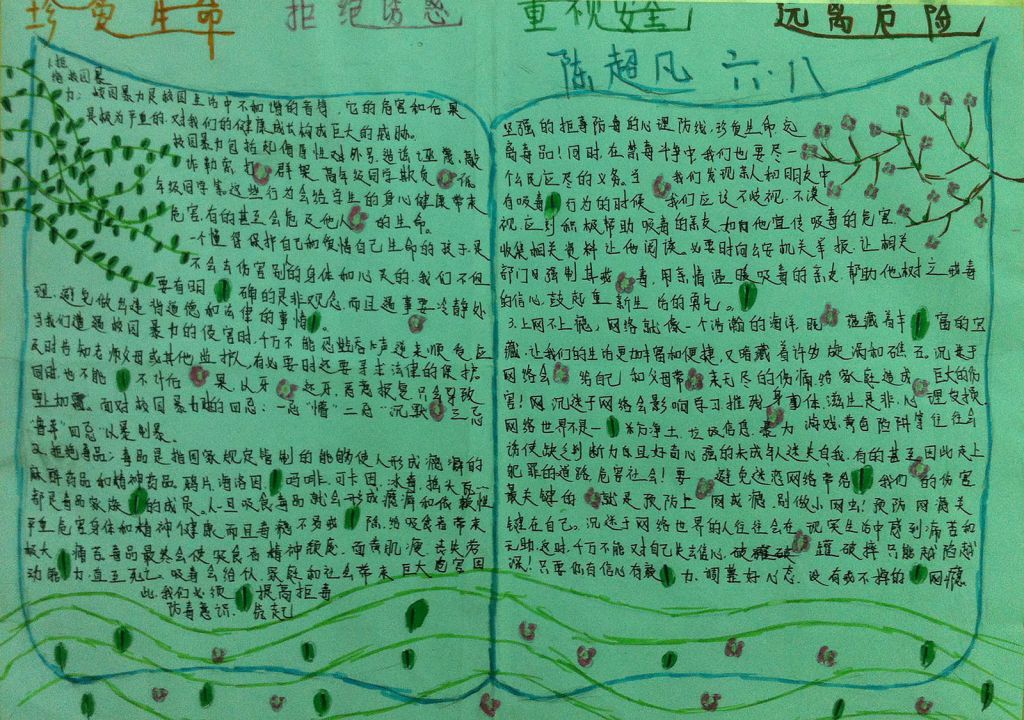 珍贵生命 拒绝诱惑 重视安全 远离危险
陈超凡 六·八
1.拒
绝校园暴
力:校园暴力是校园生活中不和谐的音符,它的危害和后果
是极为严重的,对我们的健康成长构成巨大的威胁。
校园暴力包括起侮辱性对外号,造谣 诬蔑,敲
诈勒索,打 群架,高年级同学欺负 低
年级同学等,这些行为会给学生的身心健康带来
危害,有的甚至会危及他人 的生命。
一个懂得保护自己和爱惜自己生命的孩子是
不会去伤害别的身体和心灵的,我们不但
要有明 确的是非观念,而且遇事要冷静处
理,避免做出违背道德和法律的事情。
当我们遭遇校园暴力的侵害时,千万不能忍气吞声逆来顺
及时告知老师父母或其他监护人,有必要时还要寻求法律的保护
同时,也不能 不计后 果,以牙 还牙,
面对校园暴力的四忌:一忌“惰”二忌“沉默 三忌
四忌“以暴制暴。
2.拒绝毒品:毒品是指国家规定管制的能够使人形成瘾癖的
麻醉药品和精神药品,鸦片,海洛因, 吗啡,可卡因,冰毒,摇头丸
都是毒品家族 的成员。人一旦吸食毒品就会形成瘾癖和依赖性
严重危害身体和精神健康,而且毒瘾不易戒 除,给吸食者带来
极大 痛苦毒品最终会使吸食者精神颓废,面黄肌瘦,丧失劳
动能 力,直至死亡。吸毒会给个人,家庭和社会带来巨大危害因
此,我们必须 提高拒毒
防毒意识,筑起
坚强的拒毒防毒的心理防线,珍爱生命,远
离毒品!同时,在禁毒斗争中,我们也要尽一
个公民应尽的义务。当 我们发现亲人和朋友中
有吸毒 行为的时候 我们应该不歧视,不漠
视,应到积极帮助吸毒的亲友,如向他宣传吸毒的危害,
收集相关资料让他阅读。必要时向公安机关举报,让相关
部门日强制其戒 毒,用亲情温 暖吸毒的亲友,帮助他树立戒毒
的信心,鼓起重 新生活的勇气。
3.上网不上瘾:网络就像一个浩瀚的海洋,既 蕴藏着丰 富的宝
藏,让我们的生活更加丰富和便捷,又暗藏着许多旋涡和礁石,沉迷于
网络会 给自己 和父母带 来无尽的伤痛,给家庭造成 巨大的伤
害!网,沉迷于网络会影响学习推残 身事体,滋生是非,心 理失
网络世界不是一 片净土,垃圾信息,暴力 游戏,黄色陷阱等往往会
诱使缺乏判断力而且好奇心强的未成年人迷失自我,有的甚至 因此走上
犯罪的道路,危害社会!要 避免迷恋网络带给 我们 的伤害
最关键的 就是预防上 网成瘾,别做小网虫!预防网瘾关
键在自己。沉迷于网络世界的人往往会在现实生活中感到痛苦和
无助,这时,千万不能对自己失去信心,破罐破 罐破摔只能越陷越
深!只要你有信心有毅 力,调整好心态,没有戒不掉的 网瘾